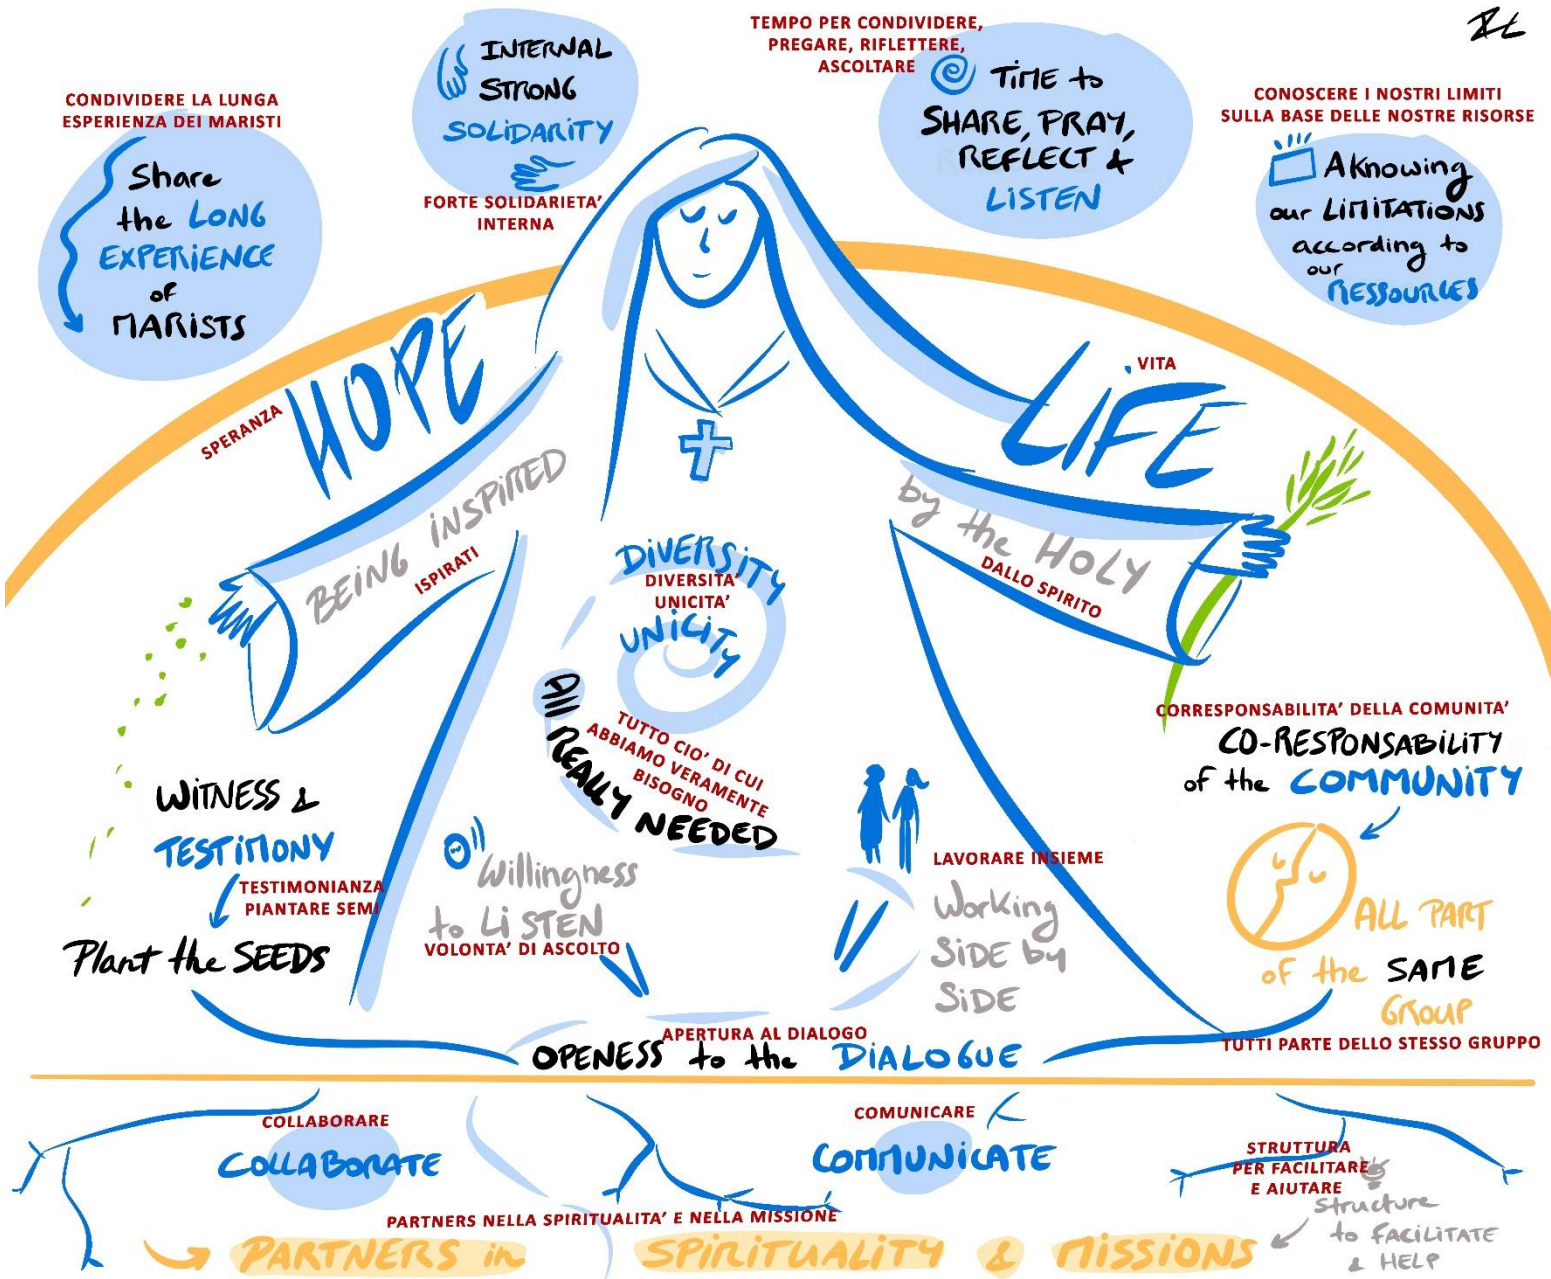 CONDIVIDERE LA LUNGA
ESPERIENZA DEI MARISTI
Share
the LONG
EXPERIENCE
of
MARISTS
INTERNAL
STRONG
SOLIDARITY
FORTE SOLIDARIETA'
INTERNA
TEMPO PER CONDIVIDERE,
PREGARE, RIFLETTERE,
ASCOLTARE
TIME to
SHARE, PRAY,
REFLECT &
LISTEN
CONOSCERE I NOSTRI LIMITI
SULLA BASE DELLE NOSTRE RISORSE
AKnowing
our LIMITATIONS
according to
our
RESSOURCES
SPERANZA
HOPE
VITA
LIFE
BEING INSPIRED
ISPIRATI
by the HOLY
DALLO SPIRITO
DIVERSITY
DIVERSITA'
UNICITA'
UNICITY
All REALLY NEEDED
TUTTO CIO' DI CUI
ABBIAMO VERAMENTE
BISOGNO
WITNESS &
TESTIMONY
TESTIMONIANZA
PIANTARE SEMI
Plant the SEEDS
Willingness
to LISTEN
VOLONTA' DI ASCOLTO
LAVORARE INSIEME
Working
SIDE by
SIDE
CORRESPONSABILITA' DELLA COMUNITA'
CO-RESPONSABILITY
of the COMMUNITY
ALL PART
of the SAME
GROUP
TUTTI PARTE DELLO STESSO GRUPPO
APERTURA AL DIALOGO
OPENESS to the DIALOGUE
COLLABORARE
COLLABORATE
COMUNICARE
COMMUNICATE
STRUTTURA
PER FACILITARE
E AIUTARE
Structure
to FACILITATE
& HELP
PARTNERS NELLA SPIRITUALITA' E NELLA MISSIONE
PARTNERS in SPIRITUALITY & MISSIONS